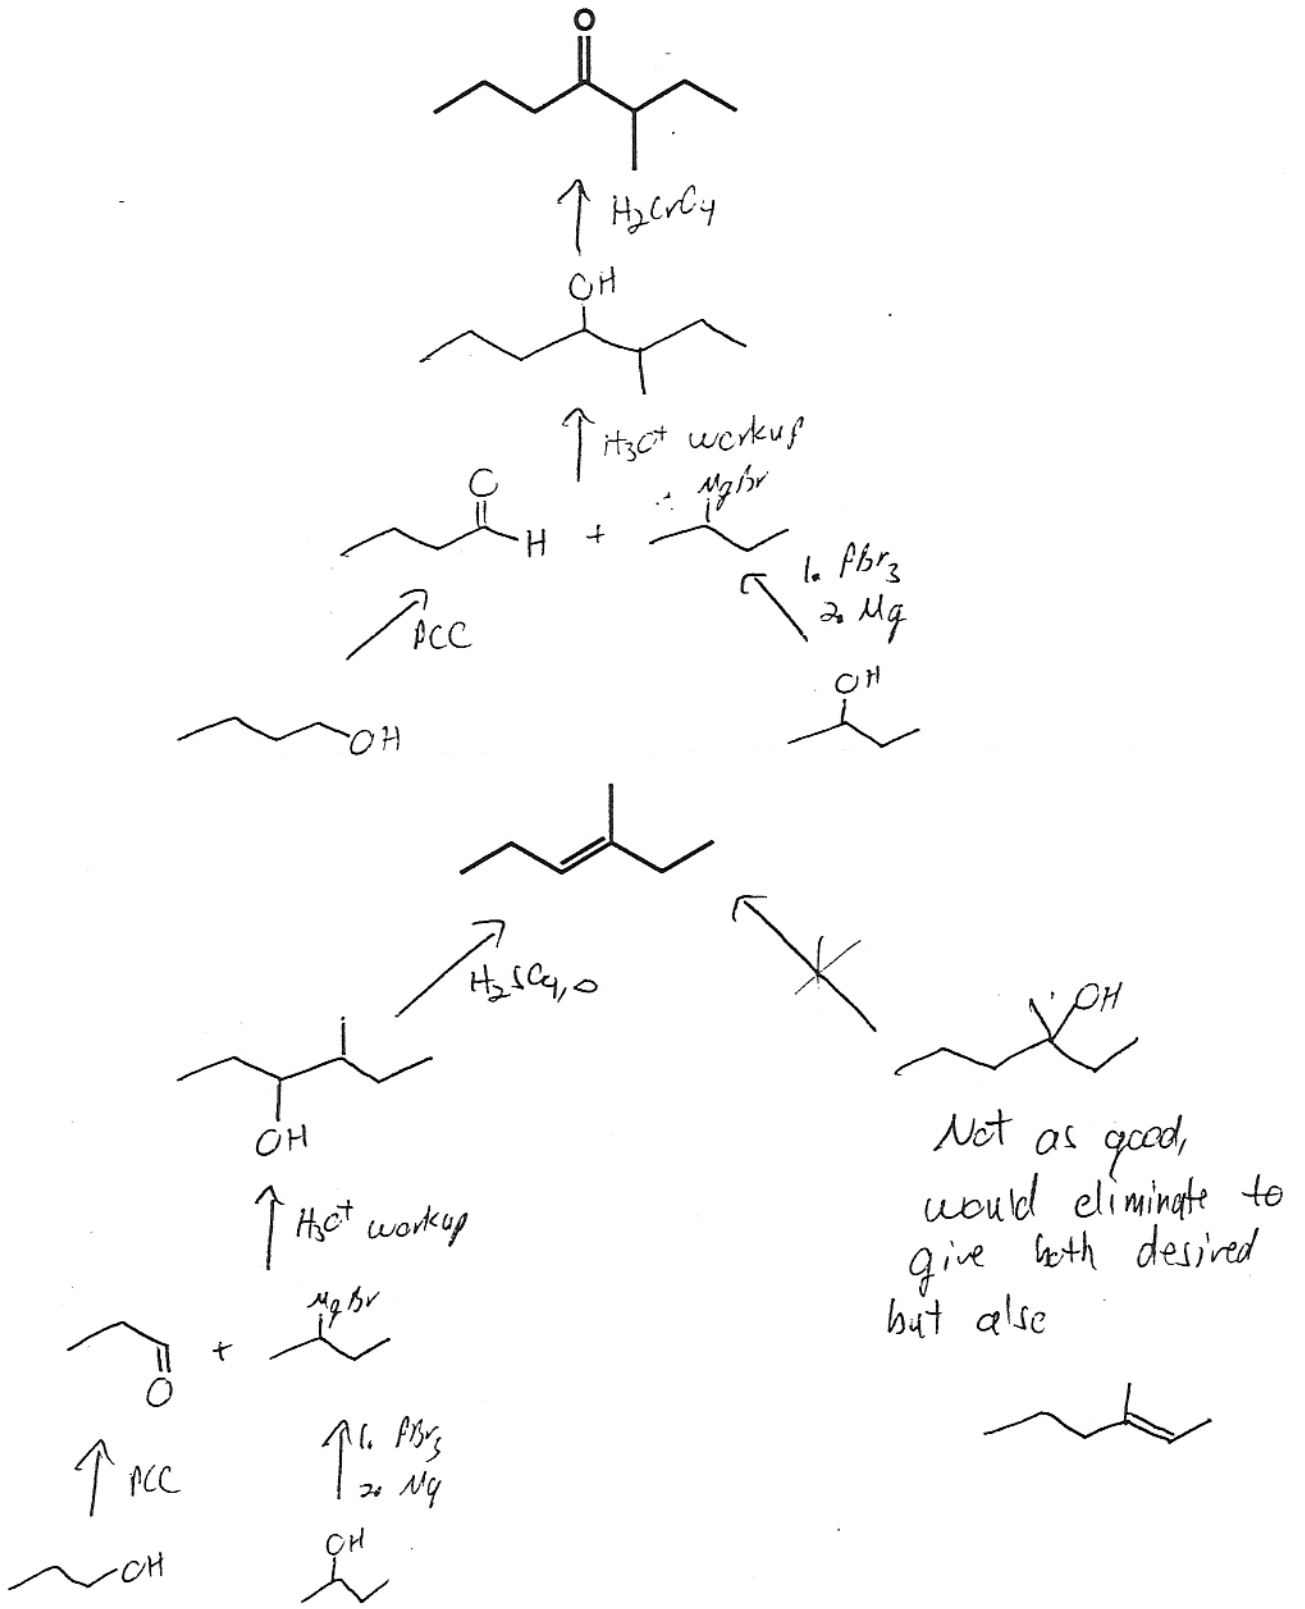 O
H2CrO4
OH
H3O+ workup
O
H
+
MgBr
1. PBr3
2. Mg
PCC
OH
OH
H2SO4, Δ
OH
OH
Not as good,
would eliminate to
give both desired
but also
H3O+ workup
MgBr
+
O
PCC
1. PBr3
2. Mg
OH
OH